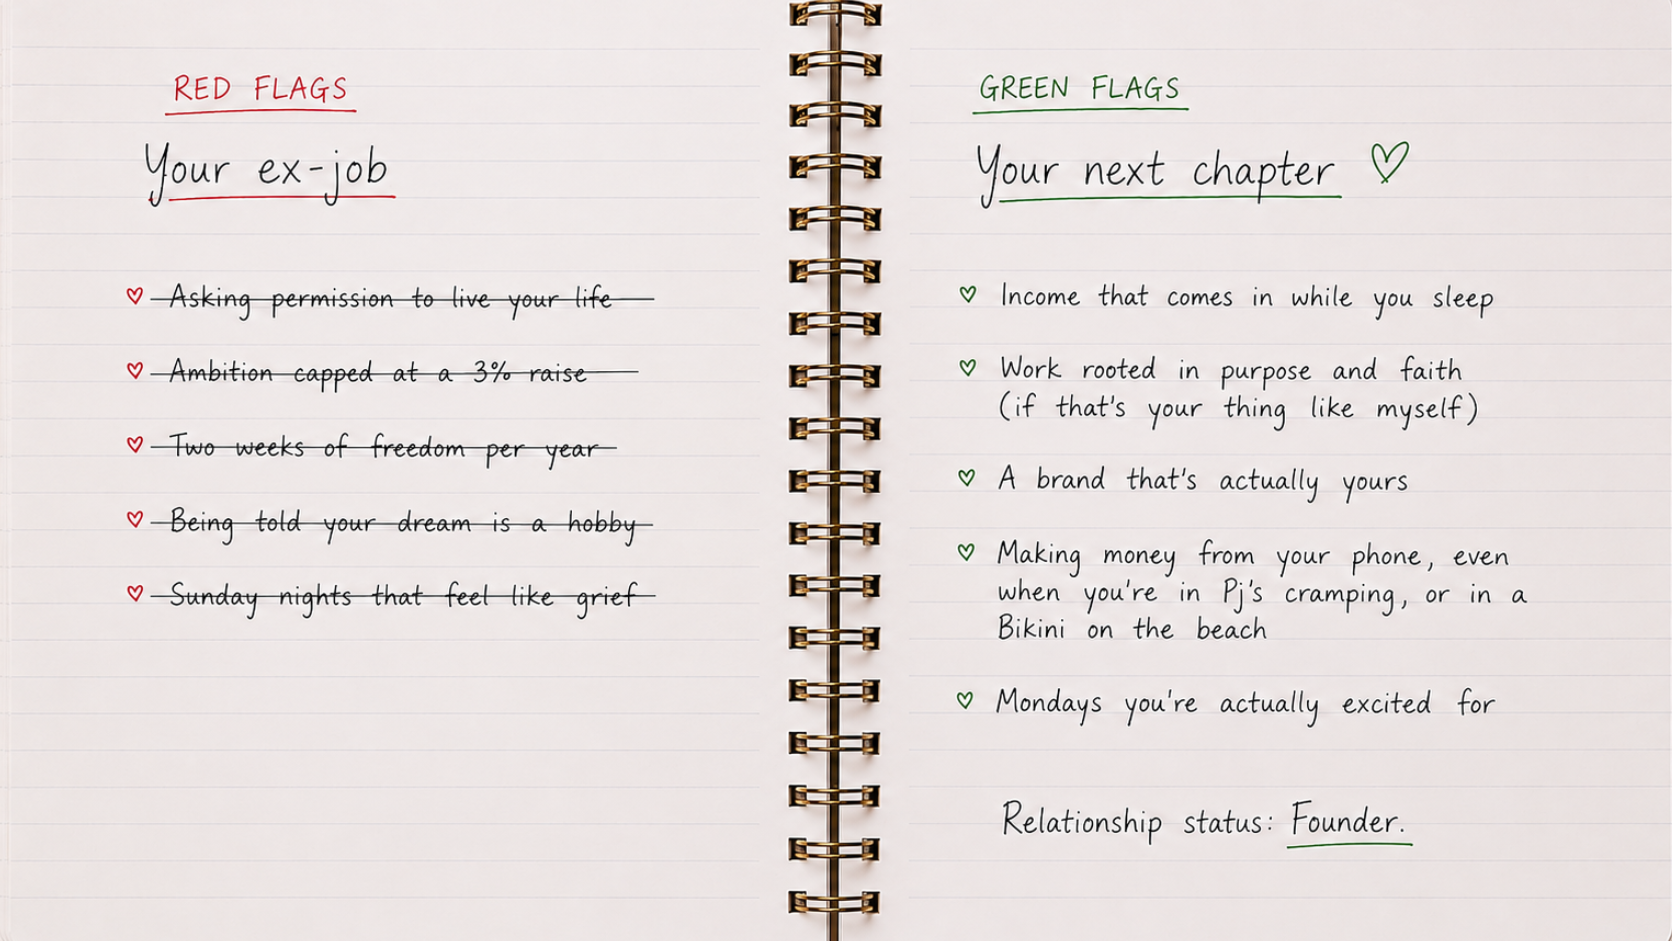 RED FLAGS
Your ex-job
Asking permission to live your life
Ambition capped at a 3% raise
Two weeks of freedom per year
Being told your dream is a hobby
Sunday nights that feel like grief
GREEN FLAGS
Your next chapter
Income that comes in while you sleep
Work rooted in purpose and faith
(if that's your thing like myself)
A brand that's actually yours
Making money from your phone, even
when you're in Pj's cramping, or in a
Bikini on the beach
Mondays you're actually excited for
Relationship status: Founder.